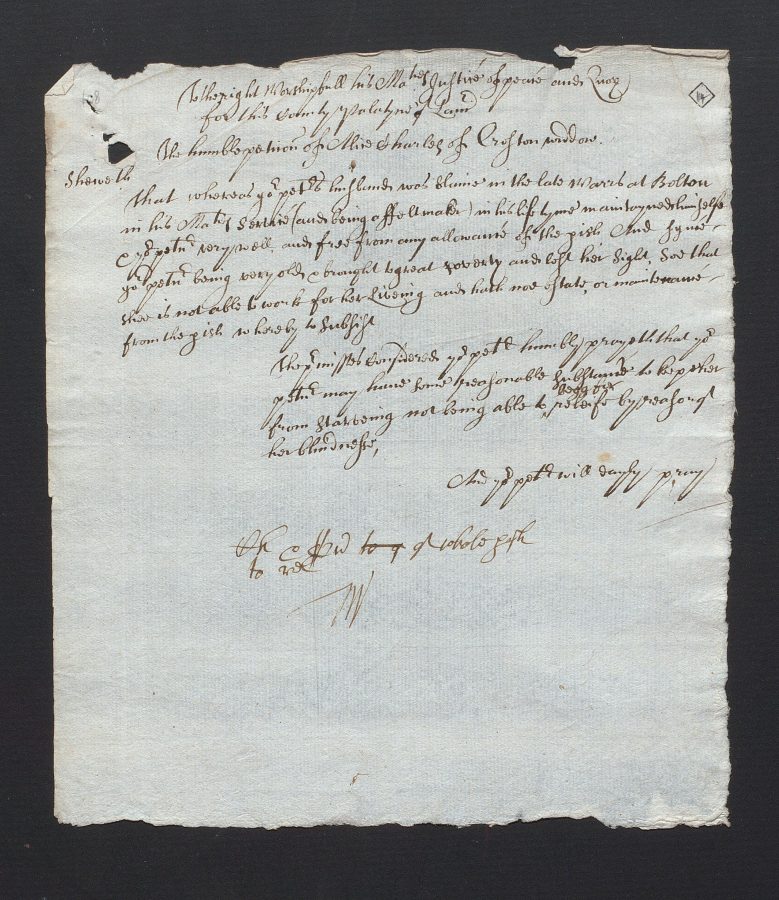 To the right Worshipfull his Ma:ties Justices of peace and Quor
for this County Palatyne of Lanc
The humble peticon of Alice Charles of Croston widdow.
Sheweth
That whereas yor petrs husband was slaine in the late Warrs at Bolton
in his Maties Service (and being a ffeltmaker) in his lifetyme maintayned himselfe
& yor petr very well, and free from any allowance of the pish And synce
yor petr being very old & brought to great poverty and lost her sight, Soe that
shee is not able to work for her Liveing and hath noe estate, or maintenance
from the pish whereby to subsist
The pmisses Considered yor petr humbly prayeth that yor
petr may have some reasonable substance to kepe her
from starveing not being able to begg or by reason of
her blindnesse,
And yor petr will dayly pray
& of whole pish
to